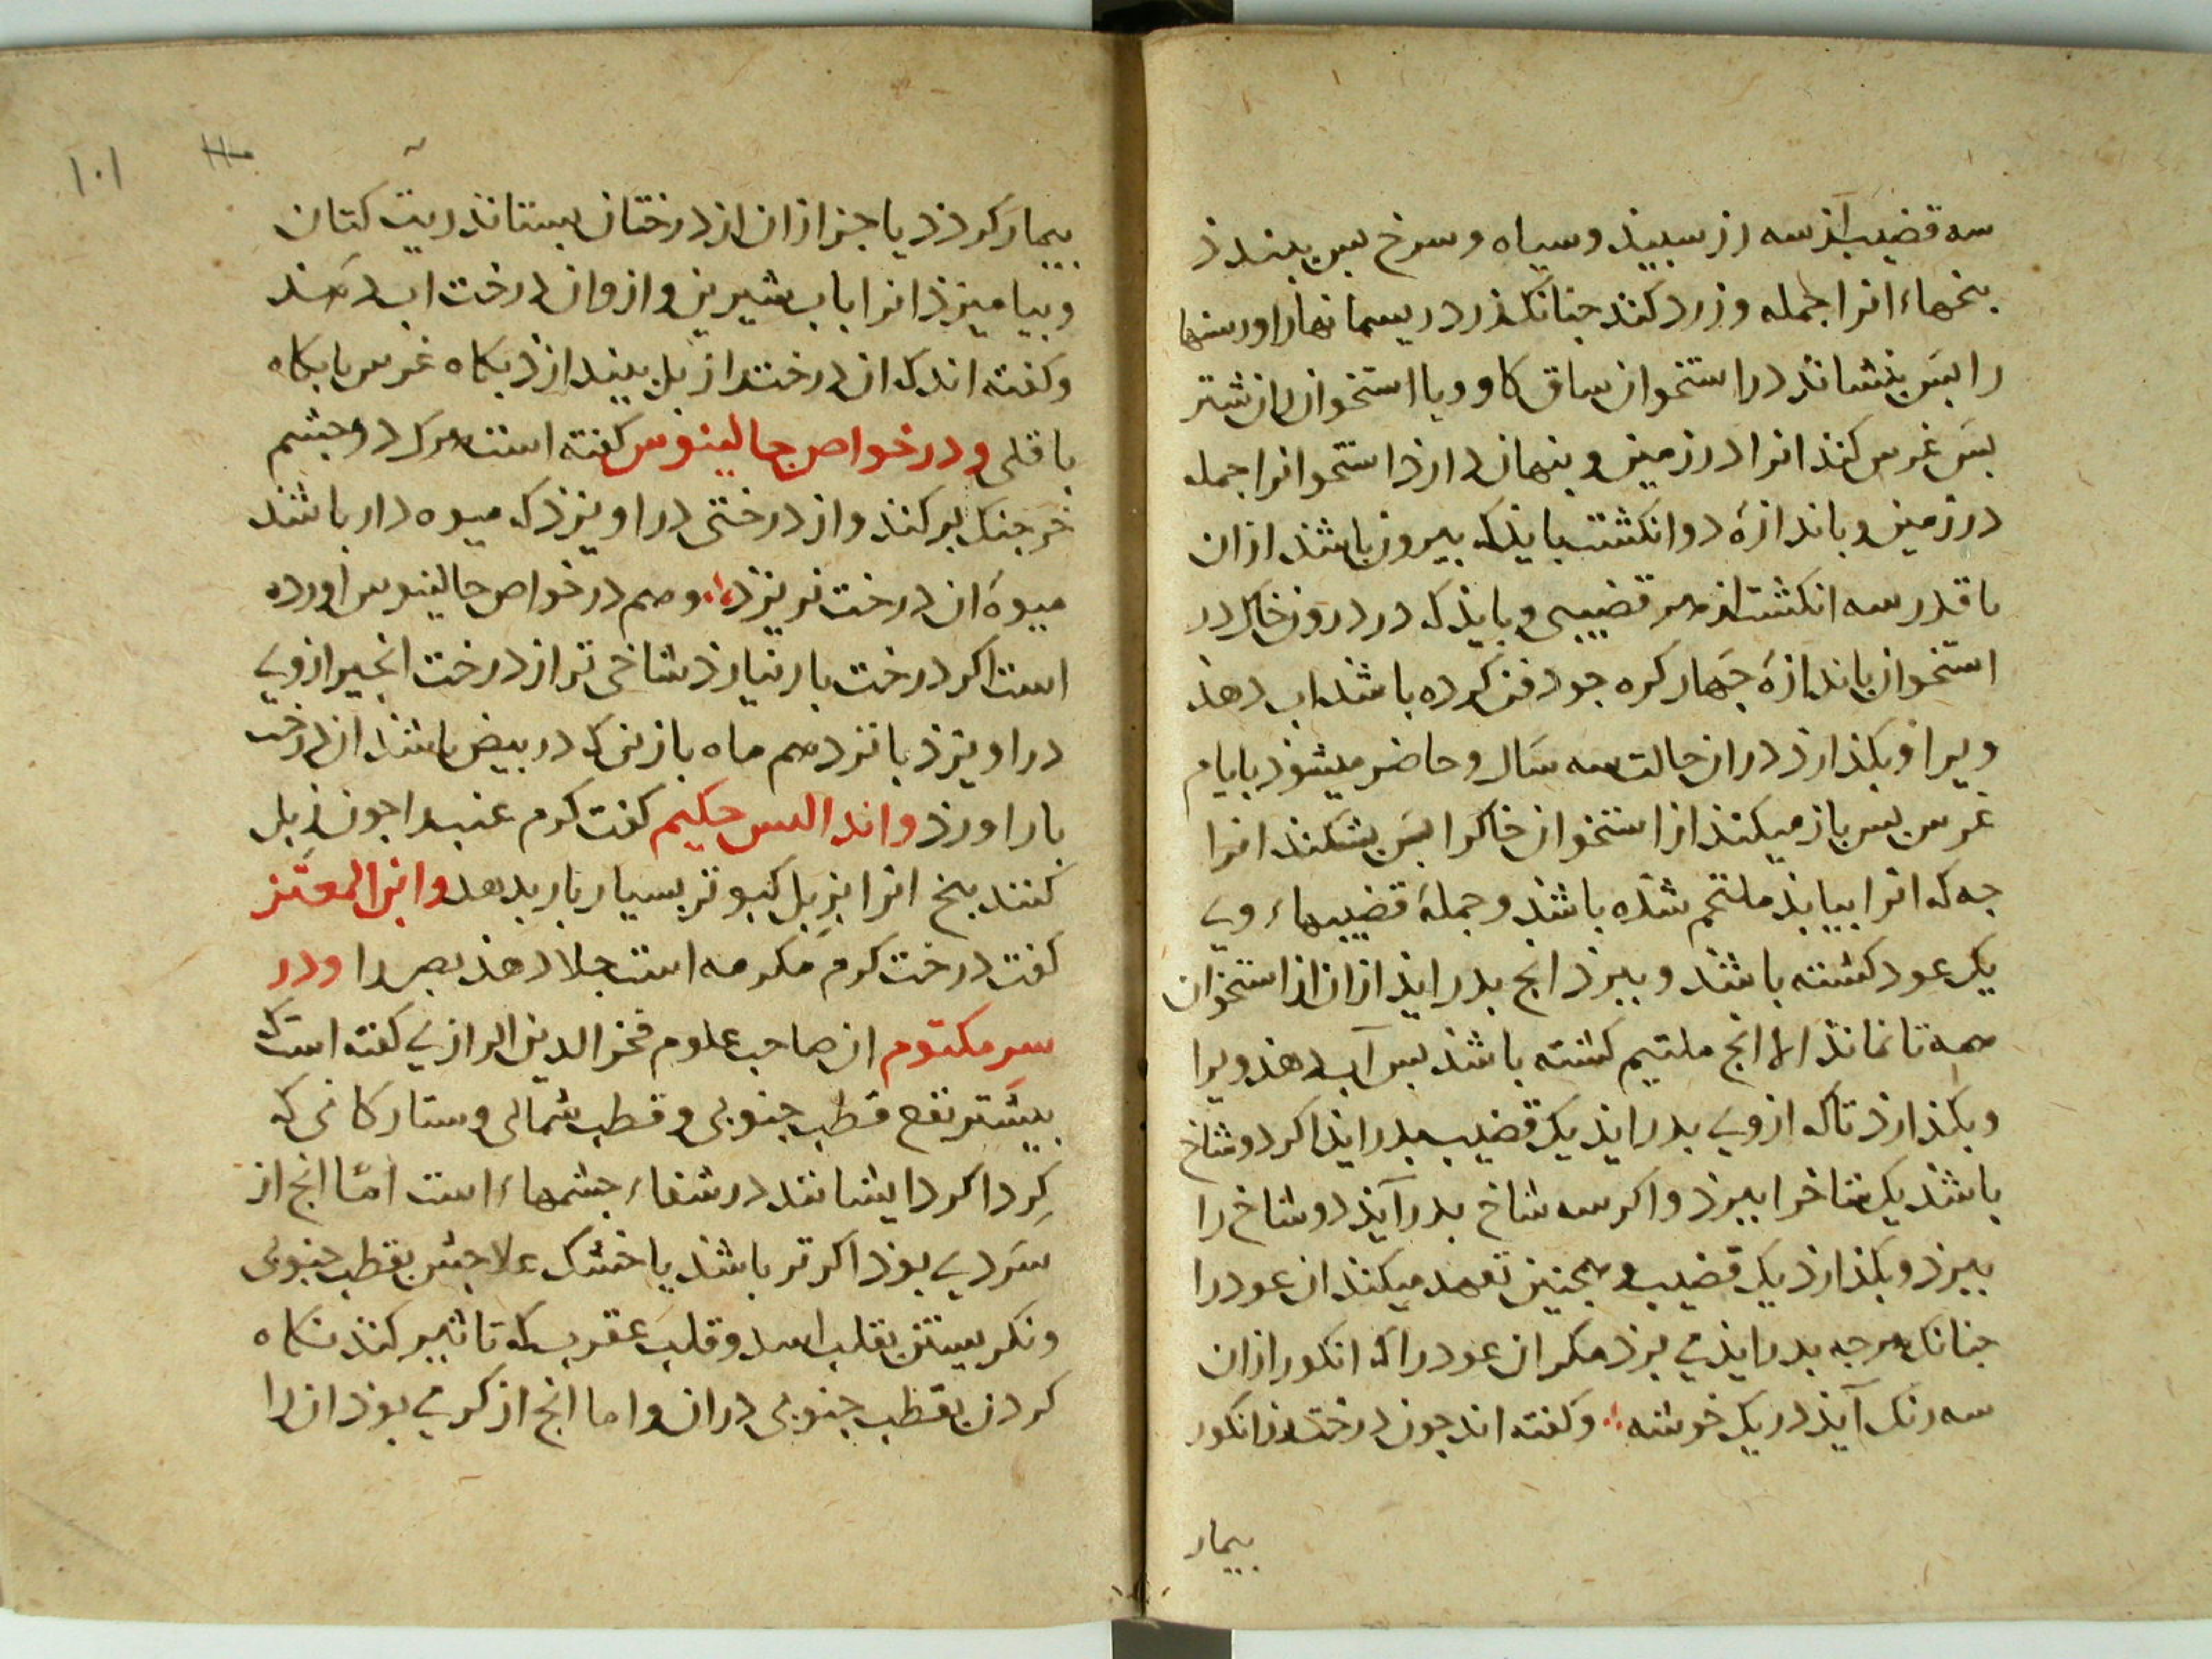 سه قضیب از سه رز سبید و سیاه و سرخ بس ببندد
بیخهاء انرا جمله وزرد کند جنانک ذر در ریسمانها را و رستها
را بس بنشاند در استخوان ساق کاو ویا استخوان ران شتر
بس غرس کند انرا در زمین و بنهان دارد استخوانرا جمله
در زمین و باندازهٔ دو انکشت بایدک بیرون باشد ازان
تا قدر سه انکشت از هر قضیبی و بایدک در درون خاک در
استخوان باندازهٔ جهار کره جود فن کرده باشد اب دهد
ویرا و بکذارد دران حالت سه سال و حاضر میشود بایام
غرس بس باز میکند از استخوان خاکرا بس بشکند انرا
جه که انرا بیابد ملتحم شده باشد و جملهٔ قضیبهاء وی
یک عود کشته باشد و ببرد انج بدراید ازان از استخوان
همه تا نماند الا انج ملتیم کشته باشد بس آب دهد ویرا
و بکذارد تاکه ازوی بدراید یک قضیب بدراید اکر دو شاخ
باشد یک شاخرا ببرد و اکر سه شاخ بدرآید دو شاخ را
ببرد و بکذارد یک قضیب و همجنین تعهد میکند ان عود را
جنانک هرجه بدراید می برد مکر ان عود را که انکور ازان
سه رنک آید در یک خوشه ∴ و کفته اند جون درخت رز انکور
بیمار
۱۰۱
بیمار کردد یا جز ازان از درختان بستاند زیت کتان
و بیامیزد انرا باب شیرین و ازوان درخت اب دهند
و کفته اند که ان درخت را زبل بیندازد بکاه غرس با بکاه
باقلی و در خواص جالینوس کفته است هرک دو جشم
خرجنک برکند و از درختی دراویزد ک میوه دار باشد
میوهٔ ان درخت نریزد ∴ و هم در خواص جالینوس اورده
است اکر درخت بار نیارد شاخی تر از درخت انجیر ازوی
دراویزد بانزدهم ماه بازنی که در بیض باشد ان درخت
بار اورد و اندالس حکیم کفت کرم عنب را جون زبل
کنند بیخ انرا بزبل کبوتر بسیار بار بدهد و ابن المعتز
کفت درخت کرم مکرمه است جلا دهد بصر را و در
سر مکتوم ان صاحب علوم فخر الدین الرازی کفته است که
بیشتر نفع قطب جنوبی و قطب شمالی و ستارکانی که
کرداکرد ایشانند در شفاء جشمهاء است امّا انج از
سردی بود اکر تر باشد یا خشک علاجش بقطب جنوبی
و نکریستن بقلب اسد و قلب عقرب که تاثیر کند نکاه
کردن بقطب جنوبی دران و اما انج از کرمی بود ان را